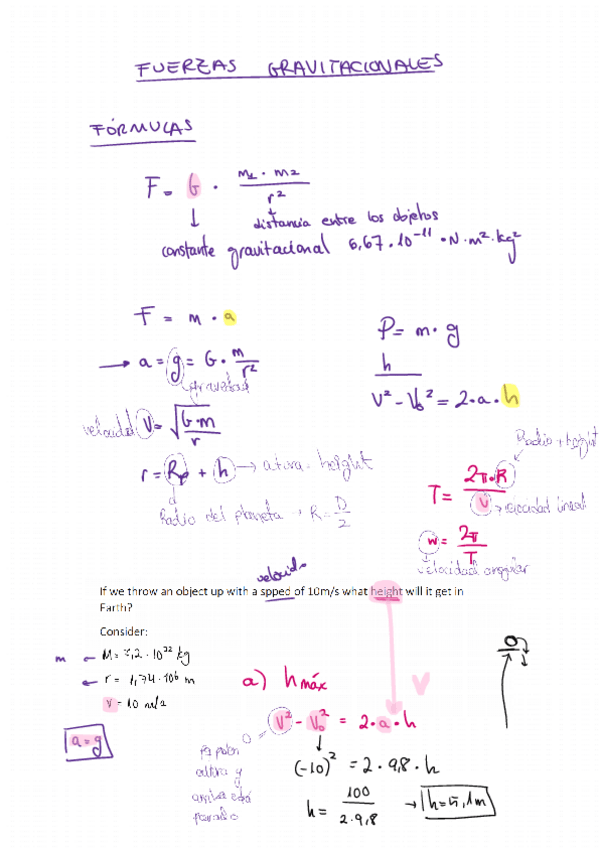 FUERZAS GRAVITACIONALES
FÓRMULAS
F = G · m1 · m2 / r²
distancia entre los objetos
constante gravitacional 6,67 · 10⁻¹¹ · N · m² · kg²
F = m · a
P = m · g
→ a = g = G · m / r²
h
gravedad
V² - V₀² = 2 · a · h
velocidad V = √(G · m / r)
Radio + height
r = Rp + h → altura - height
T = 2π · R / V
→ velocidad lineal
Radio del planeta → R = D / 2
w = 2π / T
velocidad angular
velocid.
If we throw an object up with a spped of 10m/s what height will it get in
Earth?
Consider:
m ← M = 7,2 · 10²² kg
← r = 1,74 · 10⁶ m
a) h máx
V = 10 m/s
V² - V₀² = 2 · a · h
0
a = g
(-10)² = 2 · 9,8 · h
altura y
arriba está
parado
h = 100 / 2 · 9,8 → h = 5,1 m